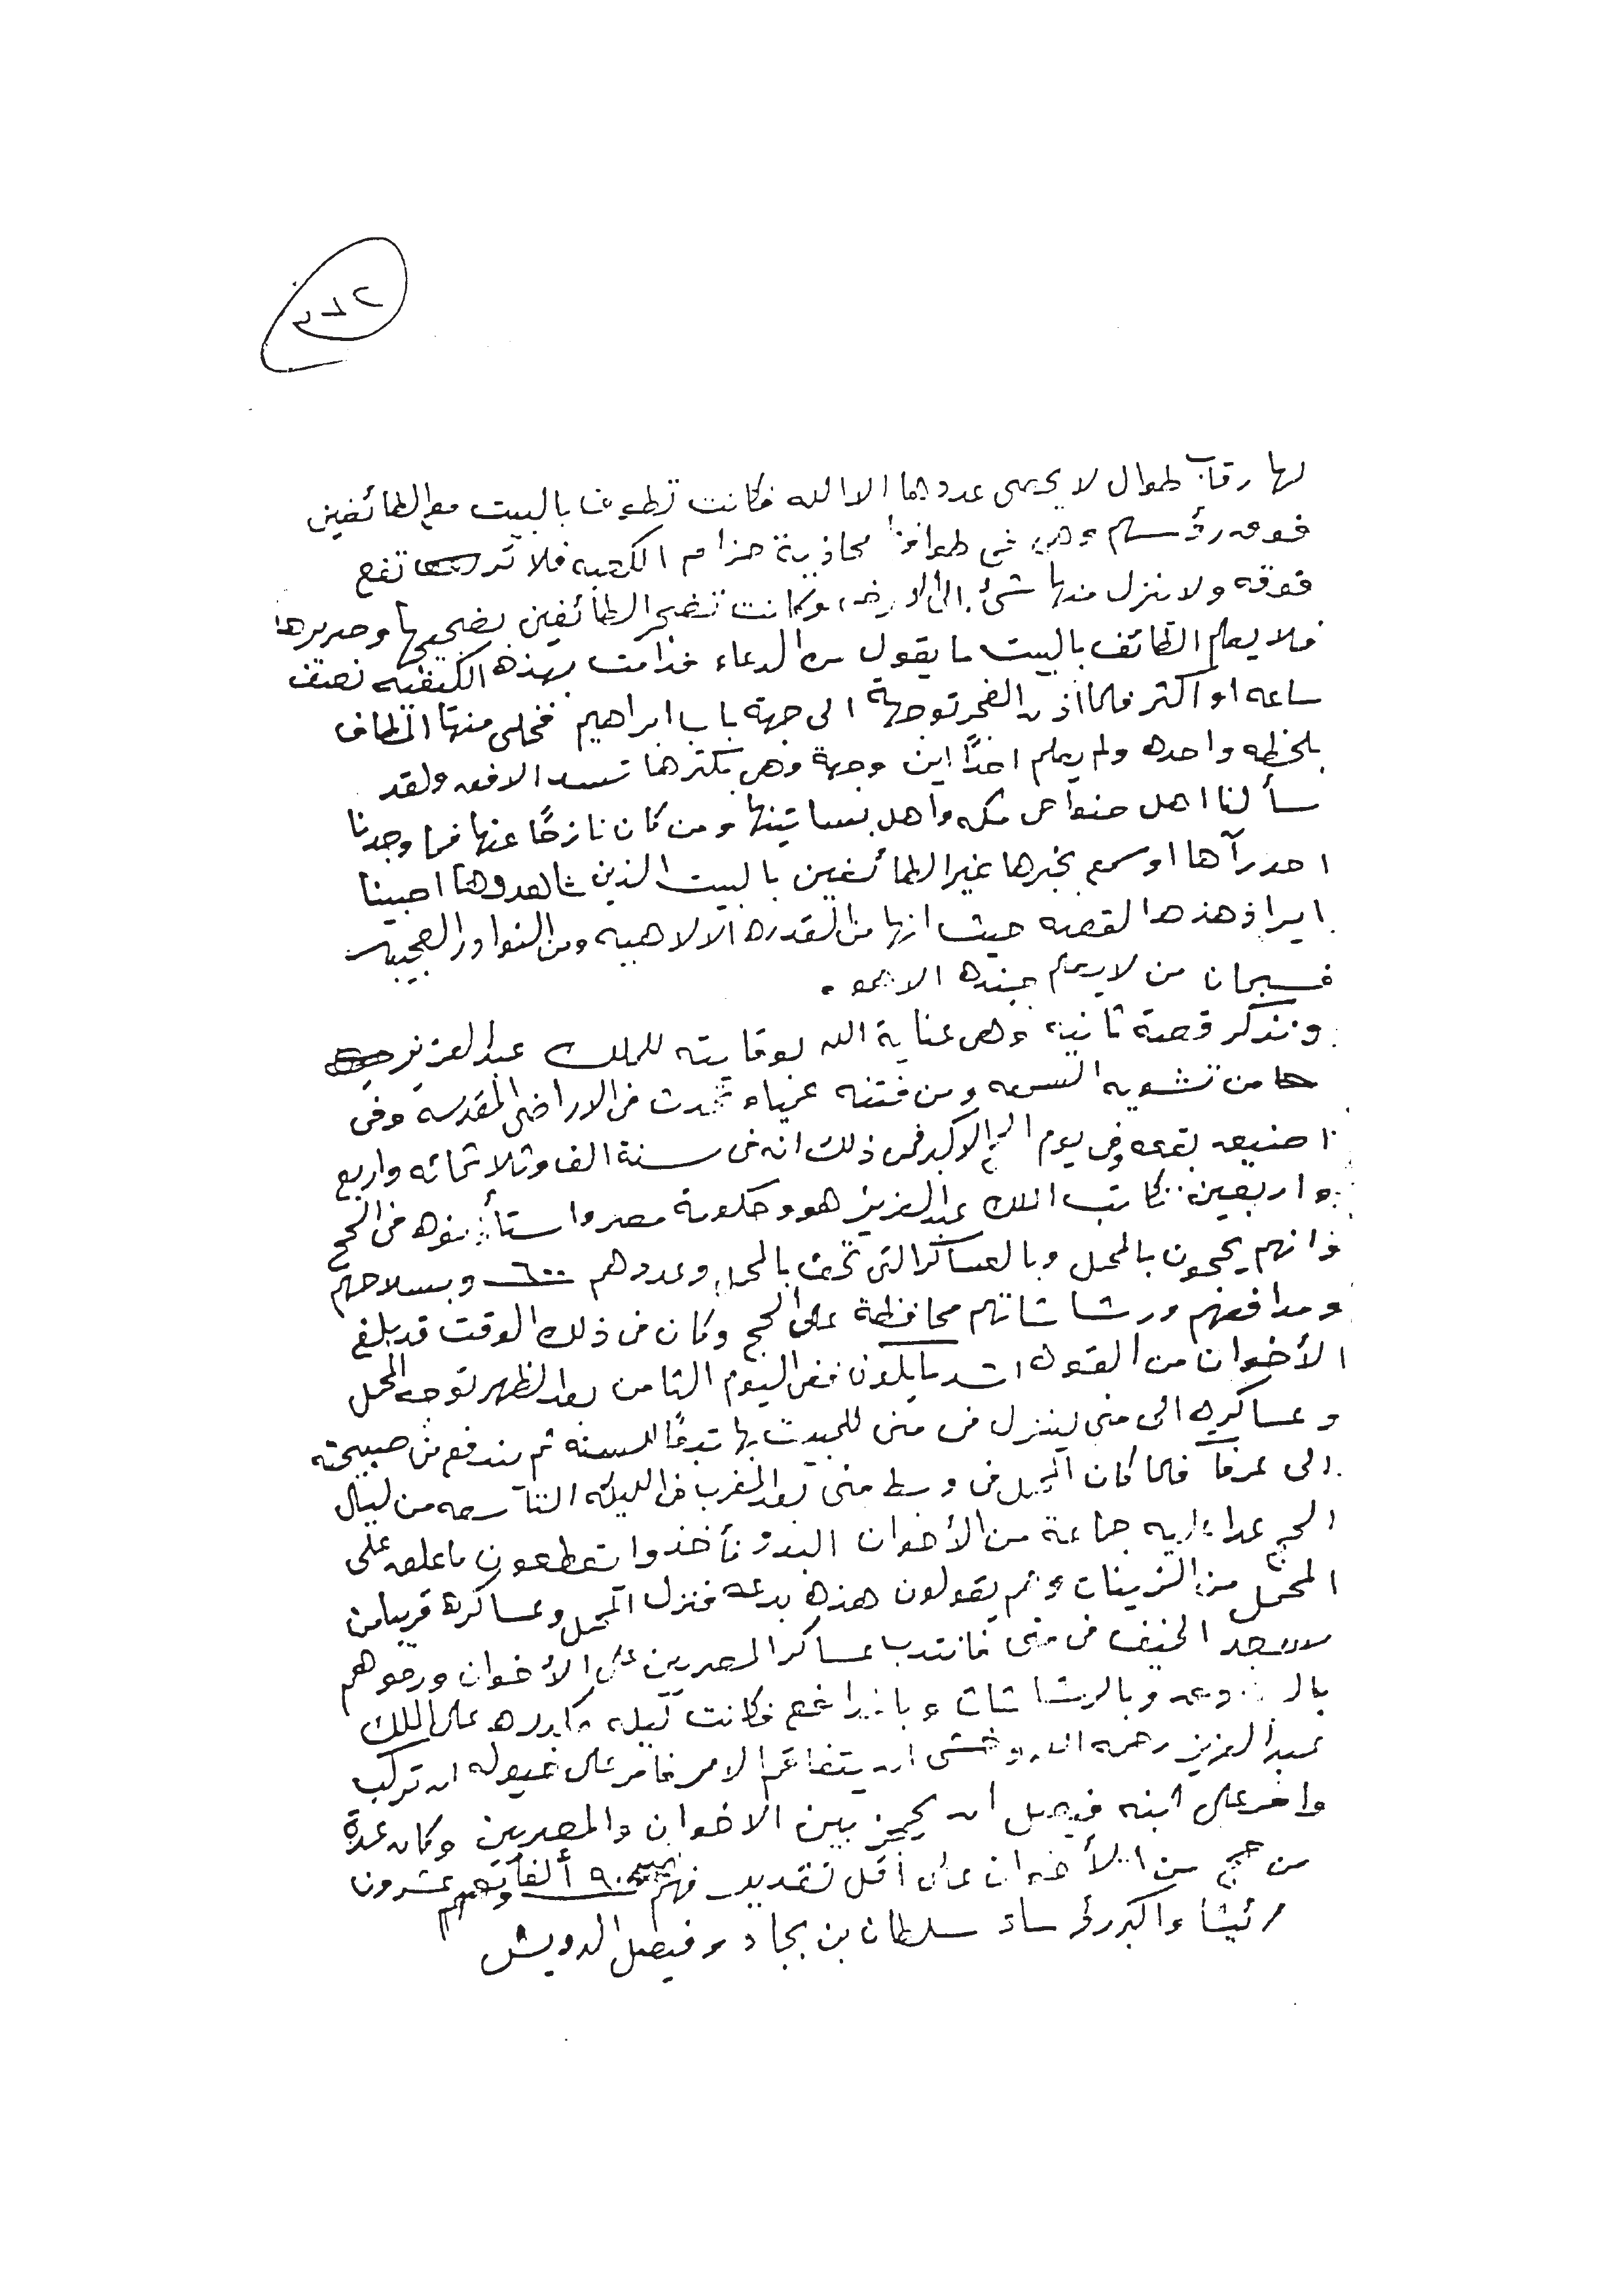 لها رقاب طوال لا يحصى عددها الا الله فكانت تطوف بالبيت مع الطائفين
فوق رؤسهم وهي في طوافها محاذية حزام الكعبه فلا ترتفع
فوقه ولا ينزل منها شئ الى الارض وكانت تضجر الطائفين بضجيجها وصريرها
فلا يعلم الطائف بالبيت ما يقول من الدعاء فدامت بهذه الكيفيه نصف
ساعه او اكثر فلما اذن الفجر توجهة الى جهة باب ابراهيم فخلى منها المطاف
بلحظه واحده ولم يعلم احدًا اين وجهة وهي بكثرها تسد الافق ولقد
سألنا اهل ضواحي مكه واهل بساتينها ومن كان نازحًا عنها فما وجدنا
احد رآها او سمع بخبرها غير الطائفين بالبيت الذين شاهدوها احببنا
ايراد هذه القصه حيث انها من القدره الالاهيه ومن النوادر العجيبه
فسبحان من لا يعلم جنده الا هو .
ونذكر قصة ثانيه وهي عناية الله بوقايته للملك عبد العزيز
من تشويه السمعه ومن فتنه عمياء تحدث في الاراضي المقدسه وفي
اضيق بقعه وفي يوم الحج الاكبر فمن ذلك انه في سنة الف وثلاثمائه واربع
واربعين تكاتب الملك عبد العزيز هو وحكومة مصر واستأذنوه في الحج
فانهم يحجون بالمحمل وبالعساكر التي تحف بالمحمل وعددهم ٦٠٠ وبسلاحهم
ومدافعهم ورشاشاتهم محافظة على الحج وكان في ذلك الوقت قد بلغ
الأخوان من القوه اشد ما يكون ففي اليوم الثامن بعد الظهر توجه المحمل
وعساكره الى منى لينزل في منى للمبيت بها تبعًا للسنه ثم يندفع من صبيحته
الى عرفة فلما كان المحمل في وسط منى بعد المغرب في الليله التاسعه من ليال
الحج عدا عليه جماعة من الأخوان البدو فأخذوا يقطعون ما علق على
المحمل من الزينات وهم يقولون هذه بدعه فنزل المحمل وعساكره قريبا من
مسجد الخيف في منى فانتدب عساكر المصريين على الأخوان ورموهم
وبالرشاشات وبالمدافع فكانت ليله مكدره على الملك
عبد العزيز رحمه الله وخشى ان يتفاقم الامر فامر على خيوله ان تركب
وامر على ابنه فيصل ان يحجز بين الاخوان والمصريين وكان عدة
من حج من الأخوان على أقل تقدير ٩٠ ألفا ومعهم عشرون
رئيسا واكبر رؤساء سلطان بن بجاد وفيصل الدويش